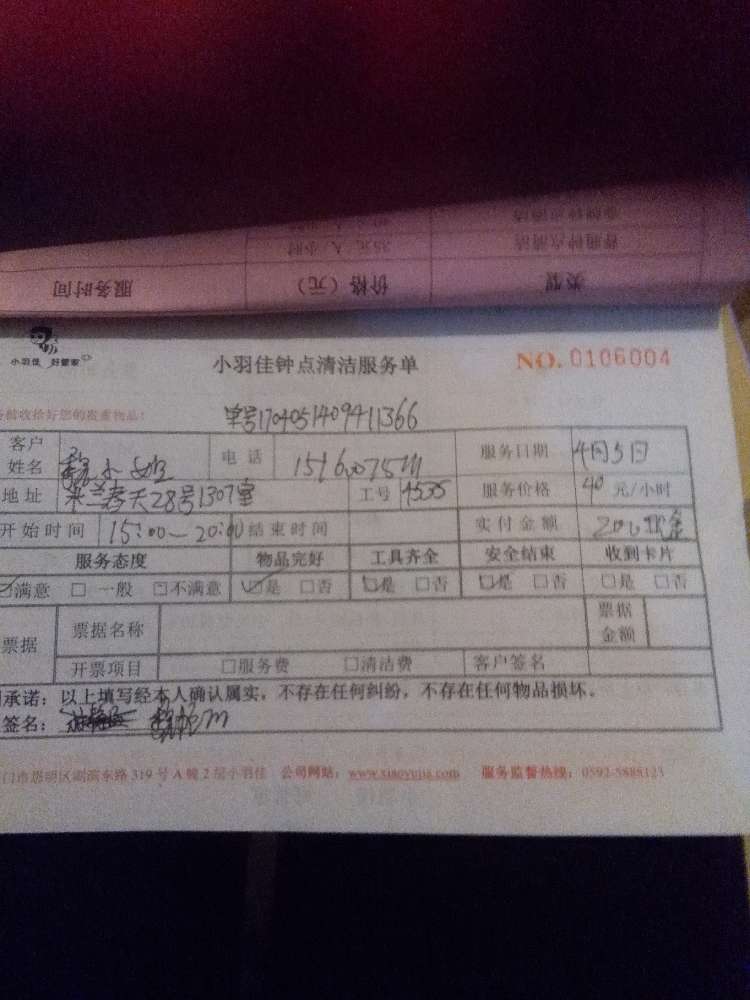 服务时间 价格（元） 类型
35元/人/小时 普通钟点清洁
小羽佳 好管家
小羽佳钟点清洁服务单 NO.0106004
收拾好您的贵重物品！
单号170405140941366
客户姓名 小姐 电话 服务日期 4月5日
地址 米兰春天28号1307室 工号 4535 服务价格 40 元/小时
开始时间 15:00-20:00 结束时间 实付金额 200现金
服务态度 物品完好 工具齐全 安全结束 收到卡片
☑满意 □一般 □不满意 ☑是 □否 ☑是 □否 ☑是 □否 □是 □否
票据 票据名称 票据金额
开票项目 □服务费 □清洁费 客户签名
承诺：以上填写经本人确认属实，不存在任何纠纷，不存在任何物品损坏。
签名：
门市思明区湖滨东路319号A幢2层小羽佳 公司网站：www.xiaoyujia.com 服务监督热线：0592-5885123